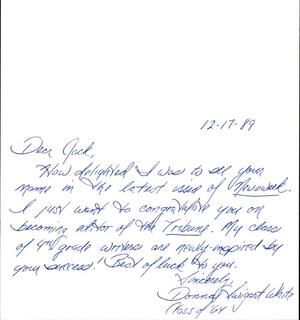 12-17-89
Dear Jack,
How delighted I was to see your
name in the latest issue of Newsweek.
I just want to congratulate you on
becoming editor of the Tribune. My class
of 4th grade writers are newly-inspired by
your success! Best of luck to you.
Sincerely,
Donna White
Class of '64